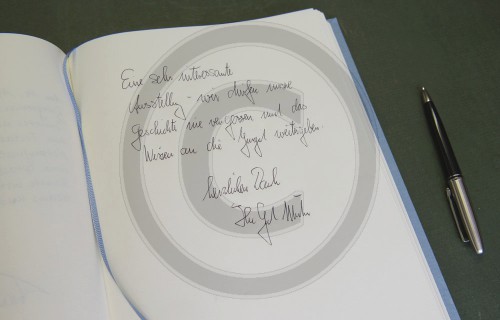 Eine sehr interessante
Ausstellung - wir dürfen unsere
Geschichte nie vergessen und das
Wissen an die Jugend weitergeben.
herzlichen Dank
Ihr